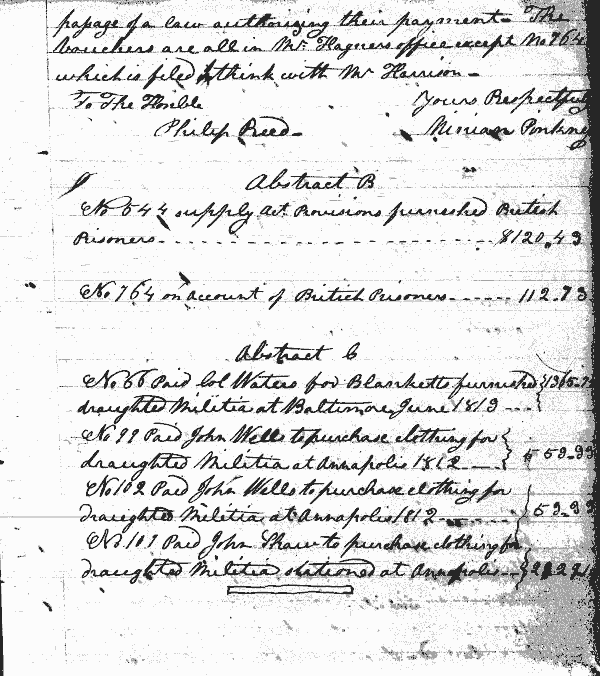 passage of a law authorising their payment - The
Vouchers are all in Mr. Hagners office except No 764
which is filed I think with Mr Harrison -
To The Honble Yours Respectfully
Philip Reed - Ninian Pinkney
Abstract B
No 544 supply act. Provisions furnished British
Prisoners - - - - - - - - $120.43
No 764 on account of British Prisoners - - - - - - 112.73
Abstract C
No 66 Paid Col Waters for Blanketts furnished
draughted Militia at Baltimore June 1813 - - -
No 99 Paid John Wells to purchase clothing for
draughted Militia at Annapolis 1812 - - - 
No 102 Paid John Wells to purchase clothing for
draughted Militia at Annapolis 1812 - - - 53.33
No 101 Paid John Shaw to purchase clothing for
draughted Militia stationed at Annapolis - -